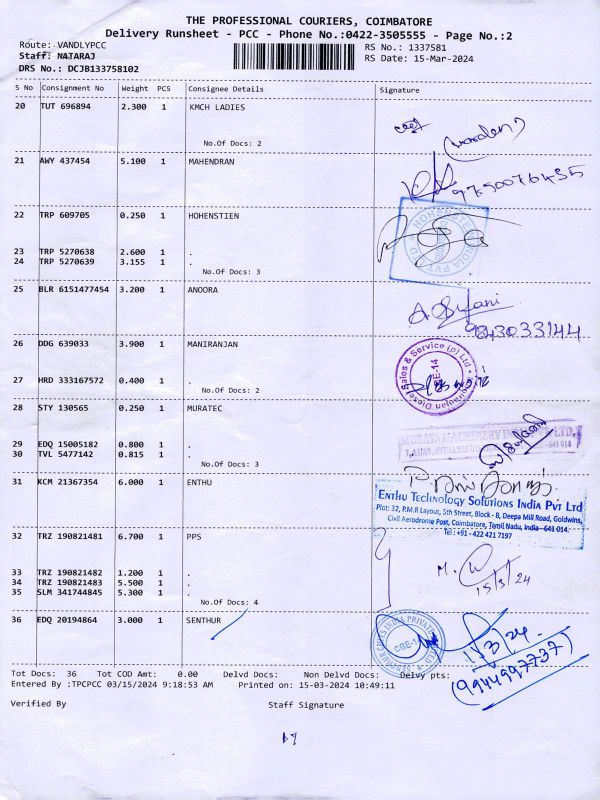 THE PROFESSIONAL COURIERS, COIMBATORE
Delivery Runsheet - PCC - Phone No.:0422-3505555 - Page No.:2
Route: VANDLYPCC RS No.: 1337581
Staff: NATARAJ RS Date: 15-Mar-2024
DRS No.: DCJB133758102
S No Consignment No Weight PCS Consignee Details Signature
20 TUT 696894 2.300 1 KMCH LADIES
No.Of Docs: 2
21 AWY 437454 5.100 1 MAHENDRAN
9750076435
22 TRP 609705 0.250 1 HOHENSTIEN
23 TRP 5270638 2.600 1 .
24 TRP 5270639 3.155 1 .
No.Of Docs: 3
25 BLR 6151477454 3.200 1 ANOORA
9843033144
26 DDG 639033 3.900 1 MANIRANJAN
27 HRD 333167572 0.400 1 .
No.Of Docs: 2
28 STY 130565 0.250 1 MURATEC
29 EDQ 15005182 0.800 1 .
30 TVL 5477142 0.815 1 .
No.Of Docs: 3
31 KCM 21367354 6.000 1 ENTHU
ENTHU TECHNOLOGY SOLUTIONS INDIA PVT LTD
Plot: 32, P.M.R Layout, 5th Street, Block - B, Deepa Mill Road, Goldwins,
Civil Aerodrome Post, Coimbatore, Tamil Nadu, India - 641 014.
Tel : +91 - 422 421 7197
32 TRZ 190821481 6.700 1 PPS
33 TRZ 190821482 1.200 1 .
34 TRZ 190821483 5.500 1 .
35 SLM 341744845 5.300 1 .
15/3/24
No.Of Docs: 4
36 EDQ 20194864 3.000 1 SENTHUR
CBE-14
(9944997737)
Tot Docs: 36 Tot COD Amt: 0.00 Delvd Docs: Non Delvd Docs: Delvy pts:
Entered By :TPCPCC 03/15/2024 9:18:53 AM Printed on: 15-03-2024 10:49:11
Verified By Staff Signature